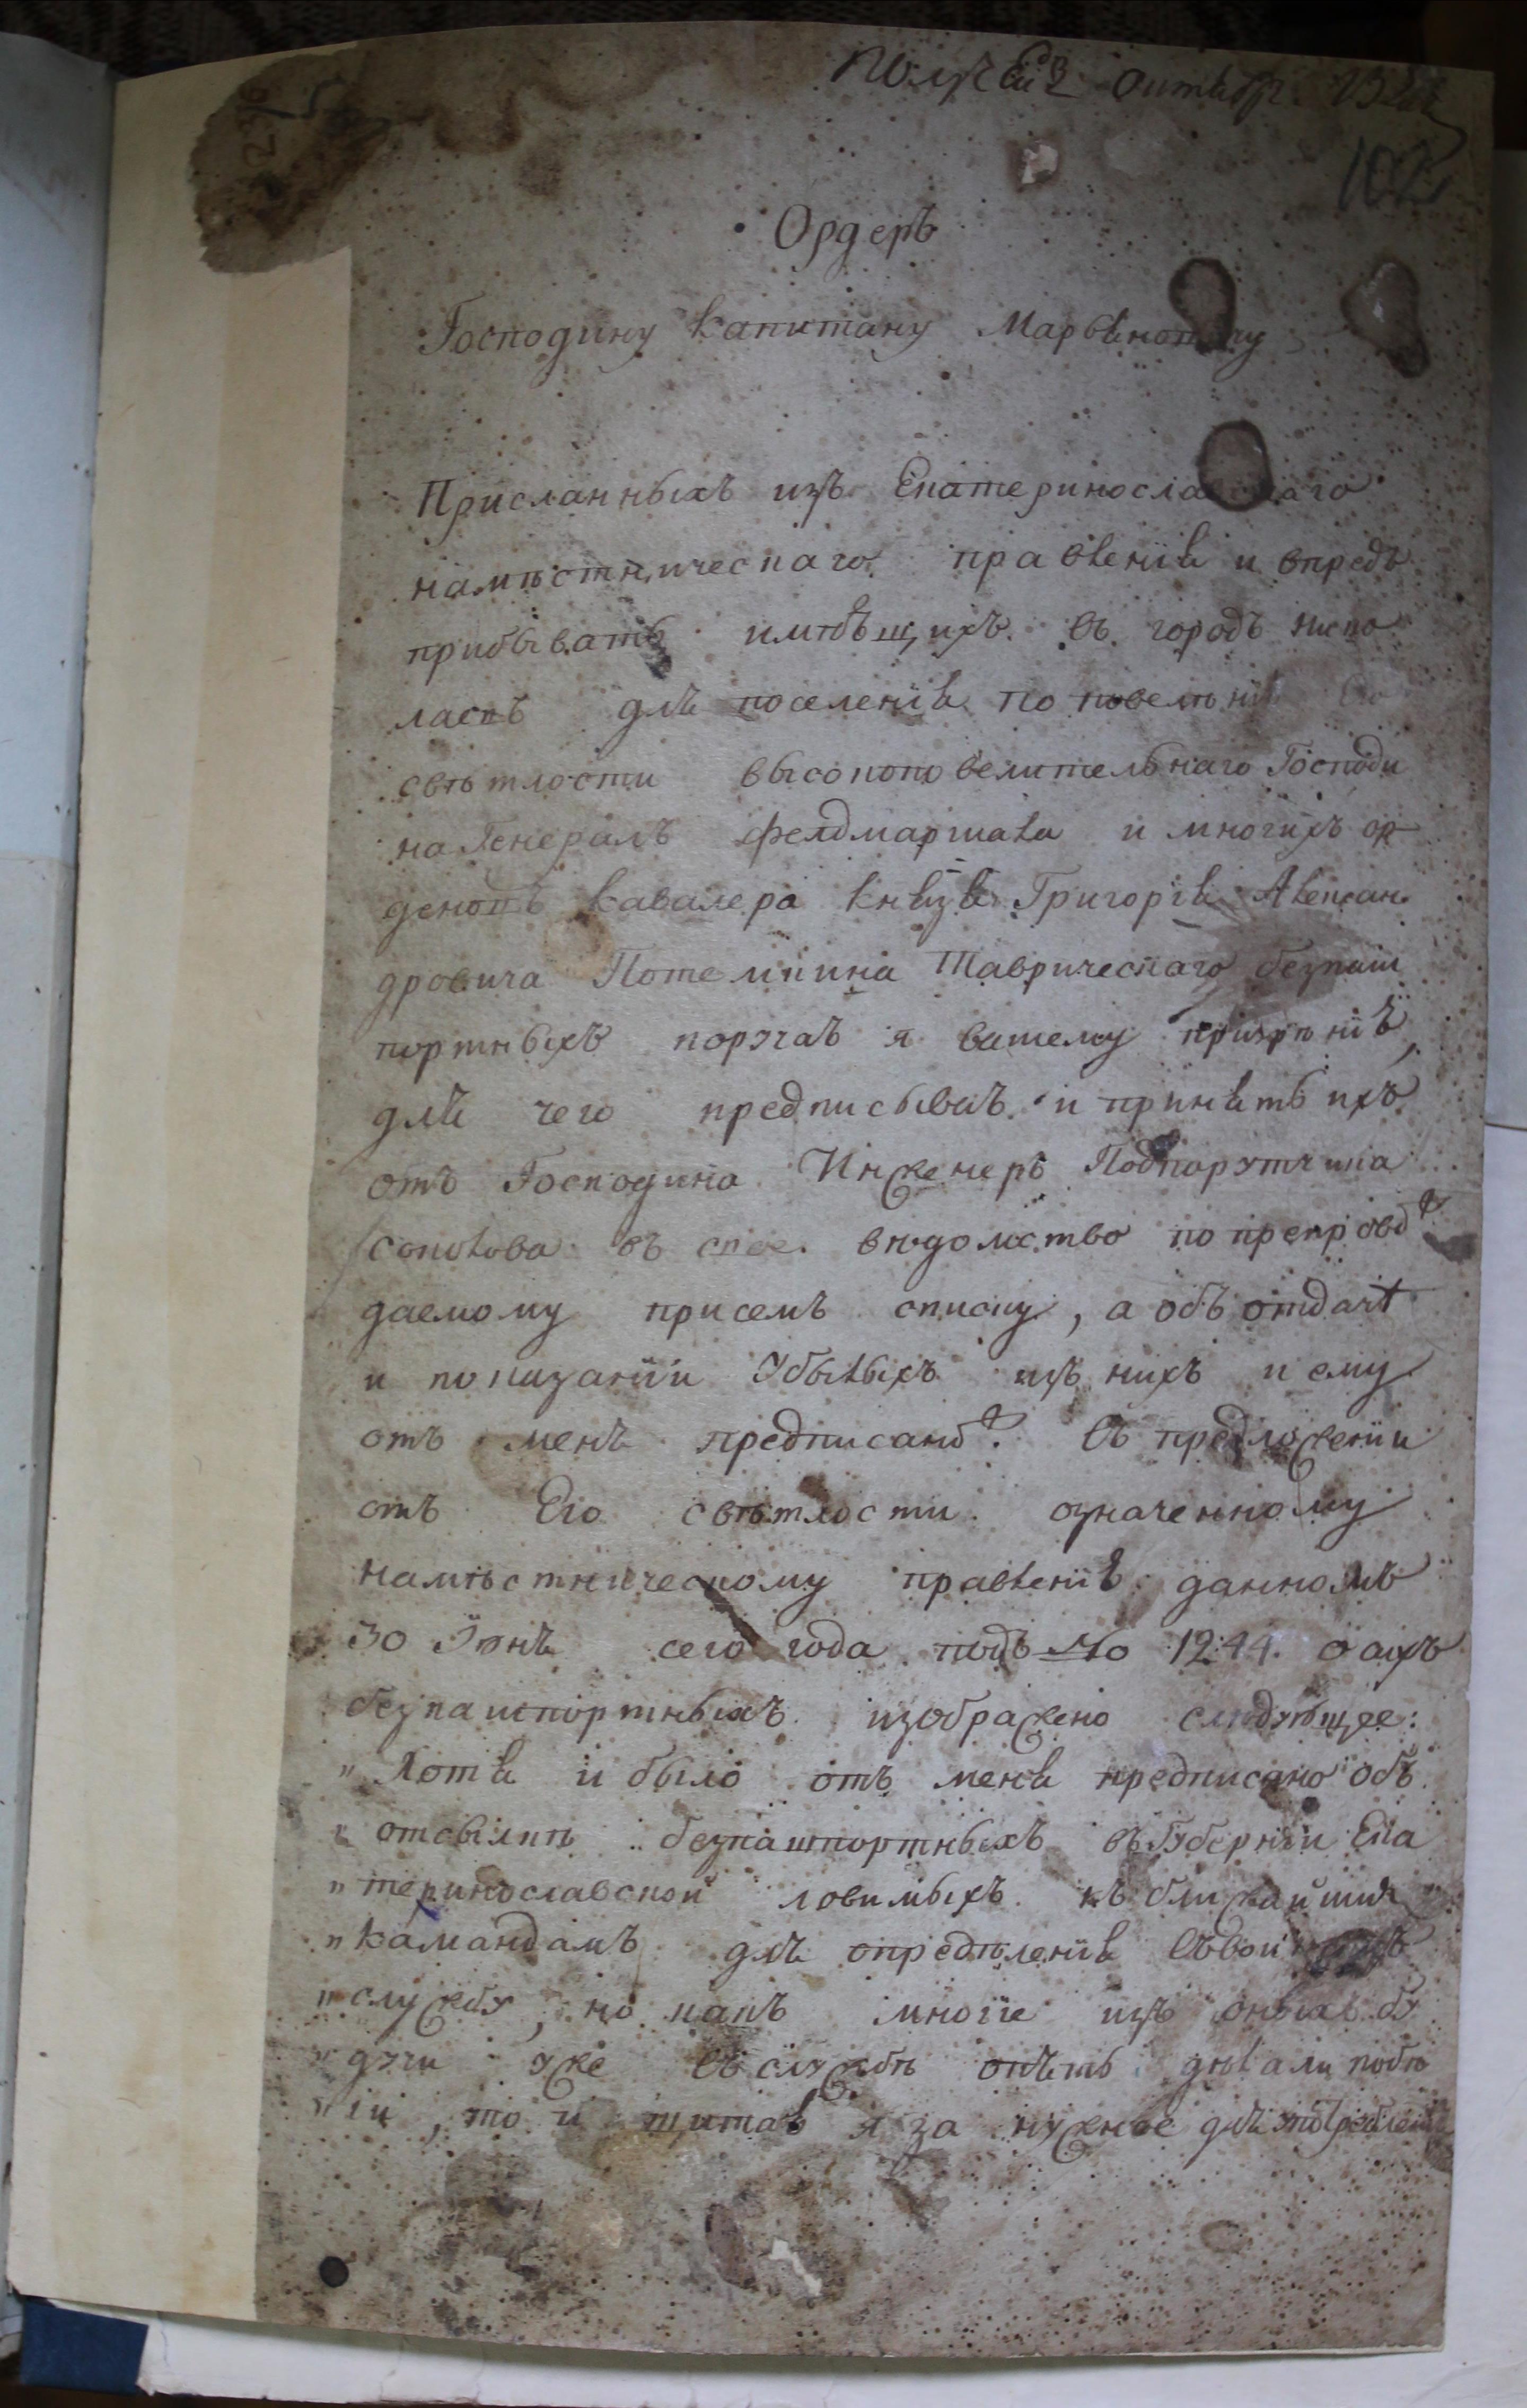 Октября
102
Ордеръ
Господину Капитану
Присланныхъ изъ Екатеринославскаго
намѣстническаго правленія и впредь
прибывать имѣющихъ въ городъ Нико
лаевъ для поселенія по повелѣнію Его
свѣтлости высокоповелительнаго Господи
на Генералъ фелдмаршала и многихъ ор
деновъ Кавалера Князя Григорія Алексан
дровича Потемкина Таврическаго безпаш
портныхъ поручаю я вашему призрѣнію,
для чего предписываю и принять ихъ
отъ Господина Инженеръ Подпорутчика
Соколова въ свое вѣдомство по препровож
даемому присемъ списку, а объ отдачѣ
и показаніи убылыхъ изъ нихъ и ему
отъ меня предписано. Въ предложеніи
отъ Его свѣтлости означенному
намѣстническому правленію данномъ
30 Іюня сего года подъ № 1244. о сихъ
безпашпортныхъ изображено слѣдующее:
„Хотя и было отъ меня предписано объ
„отсылкѣ безпашпортныхъ въ Губерніи Ека
„теринославской ловимыхъ къ ближайшимъ
„камандамъ для опредѣленія въ воинскую
„службу, но какъ многіе изъ оныхъ бу
„дучи уже въ службѣ опять дѣлали побѣ
„ги, то и щитая я за нужное для употребленія